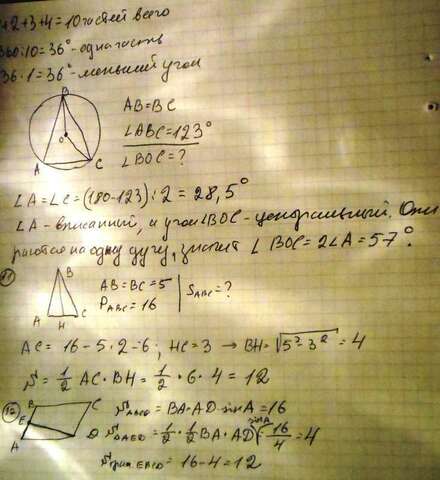 +2+3+4=10 частей всего
360:10=36°- одна часть
36·1=36°- меньший угол
B
O
A
C
AB=BC
∠ABC=123°
∠BOC=?
∠A=∠C=(180-123):2=28,5°
∠A- вписанный, и угол ∠BOC- центральный. Они
раются на одну дугу, значит ∠BOC=2∠A=57°.
B
A H C
AB=BC=5
P_ABC=16
S_ABC=?
AC=16-5·2=6; HC=3 → BH=√5²-3²=4
S=1/2 AC·BH=1/2·6·4=12
12
B C
E
A D
S_ABCD=BA·AD·sinA=16
S_ΔAED=1/2·1/2 BA·AD sinA=16/4=4
=16-4=12